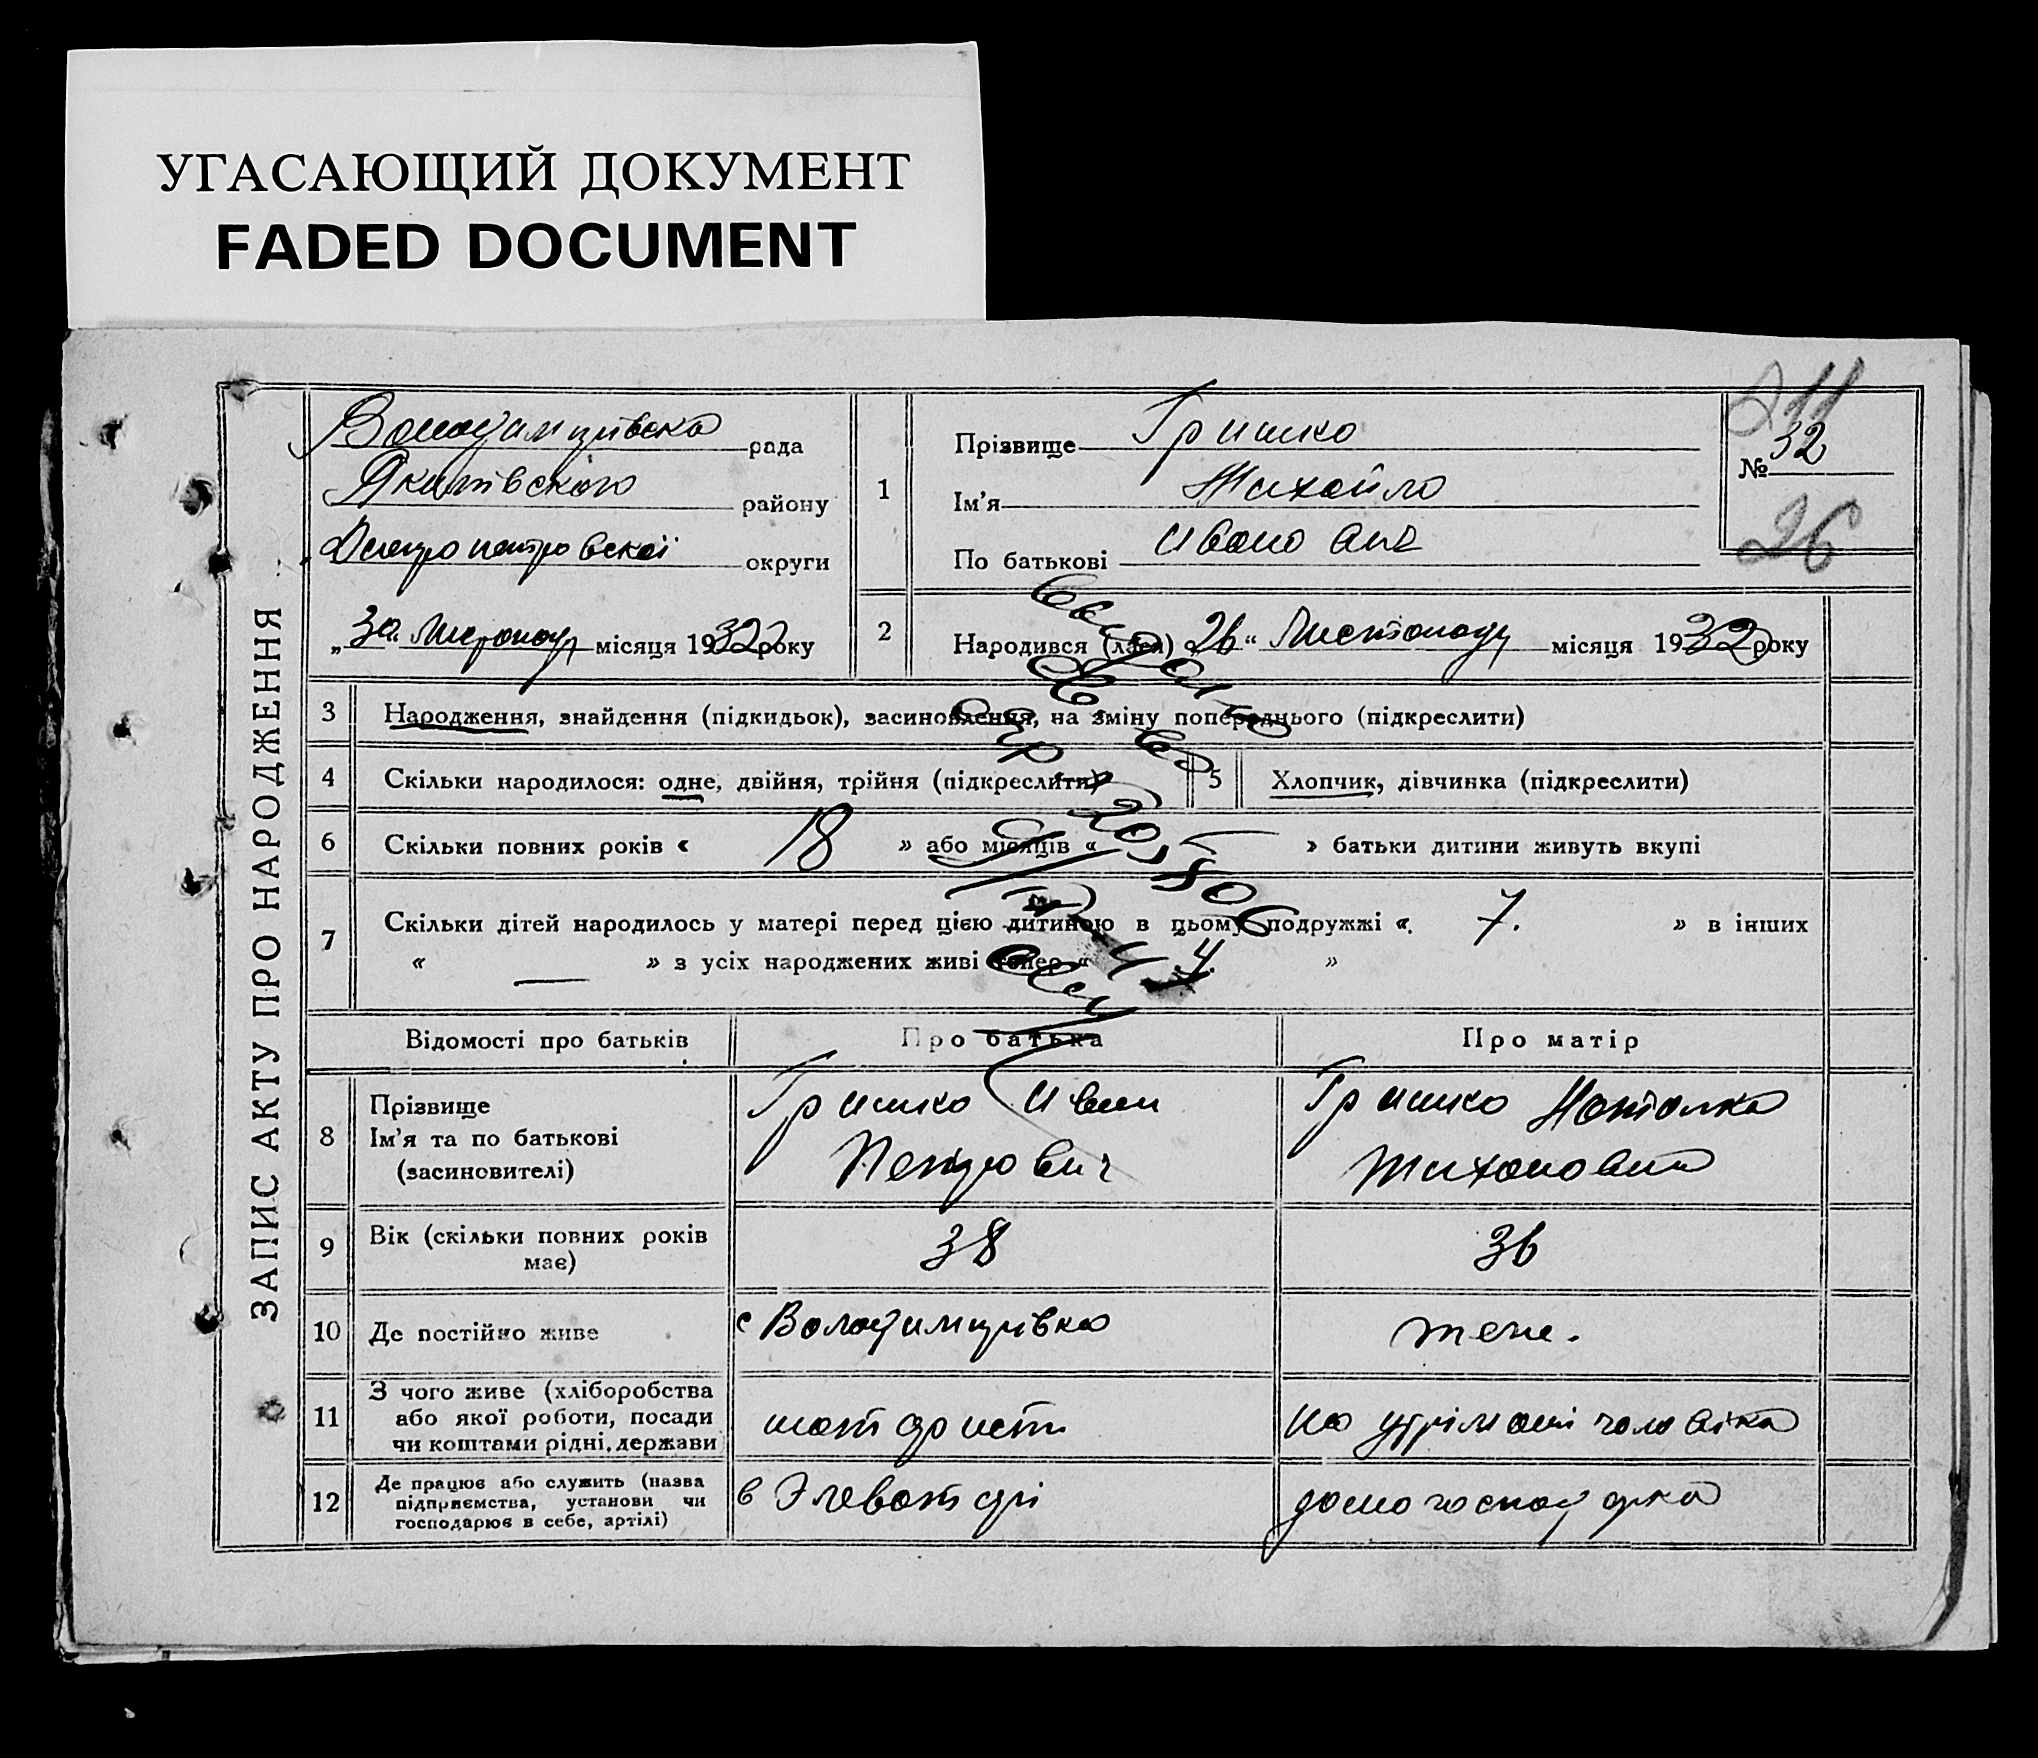 УГАСАЮЩИЙ ДОКУМЕНТ
FADED DOCUMENT
ЗАПИС АКТУ ПРО НАРОДЖЕННЯ
рада
району
Днепропетровской округи
„30“ місяця 1932 року
1
Прізвище Гришко
Ім'я Михайло
По батькові Ивано вич
211
№ 32
26
2
Народився (лася) „26“ Листопаду місяця 1932 року
3 Народження, знайдення (підкидьок), засиновлення, на зміну попереднього (підкреслити)
4 Скільки народилося: одне, двійня, трійня (підкреслити)
5 Хлопчик, дівчинка (підкреслити)
6 Скільки повних років « 18 » або місяців « — » батьки дитини живуть вкупі
7 Скільки дітей народилось у матері перед цією дитиною в цьому подружжі « 7. » в інших
« — » з усіх народжених живі тепер « 4 »
Відомості про батьків Про батька Про матір
8 Прізвище
Ім'я та по батькові
(засиновителі)
Гришко Иван
Петрович
Гришко Наталка
9 Вік (скільки повних років
має)
38
36
10 Де постійно живе
с Володимирівка
теж.
11 З чого живе (хліборобства
або якої роботи, посади
чи коштами рідні, держави
на утрімані чоловіка
12 Де працює або служить (назва
підприємства, установи чи
господарює в себе, артілі)
в Элеваторі
домогосподарка